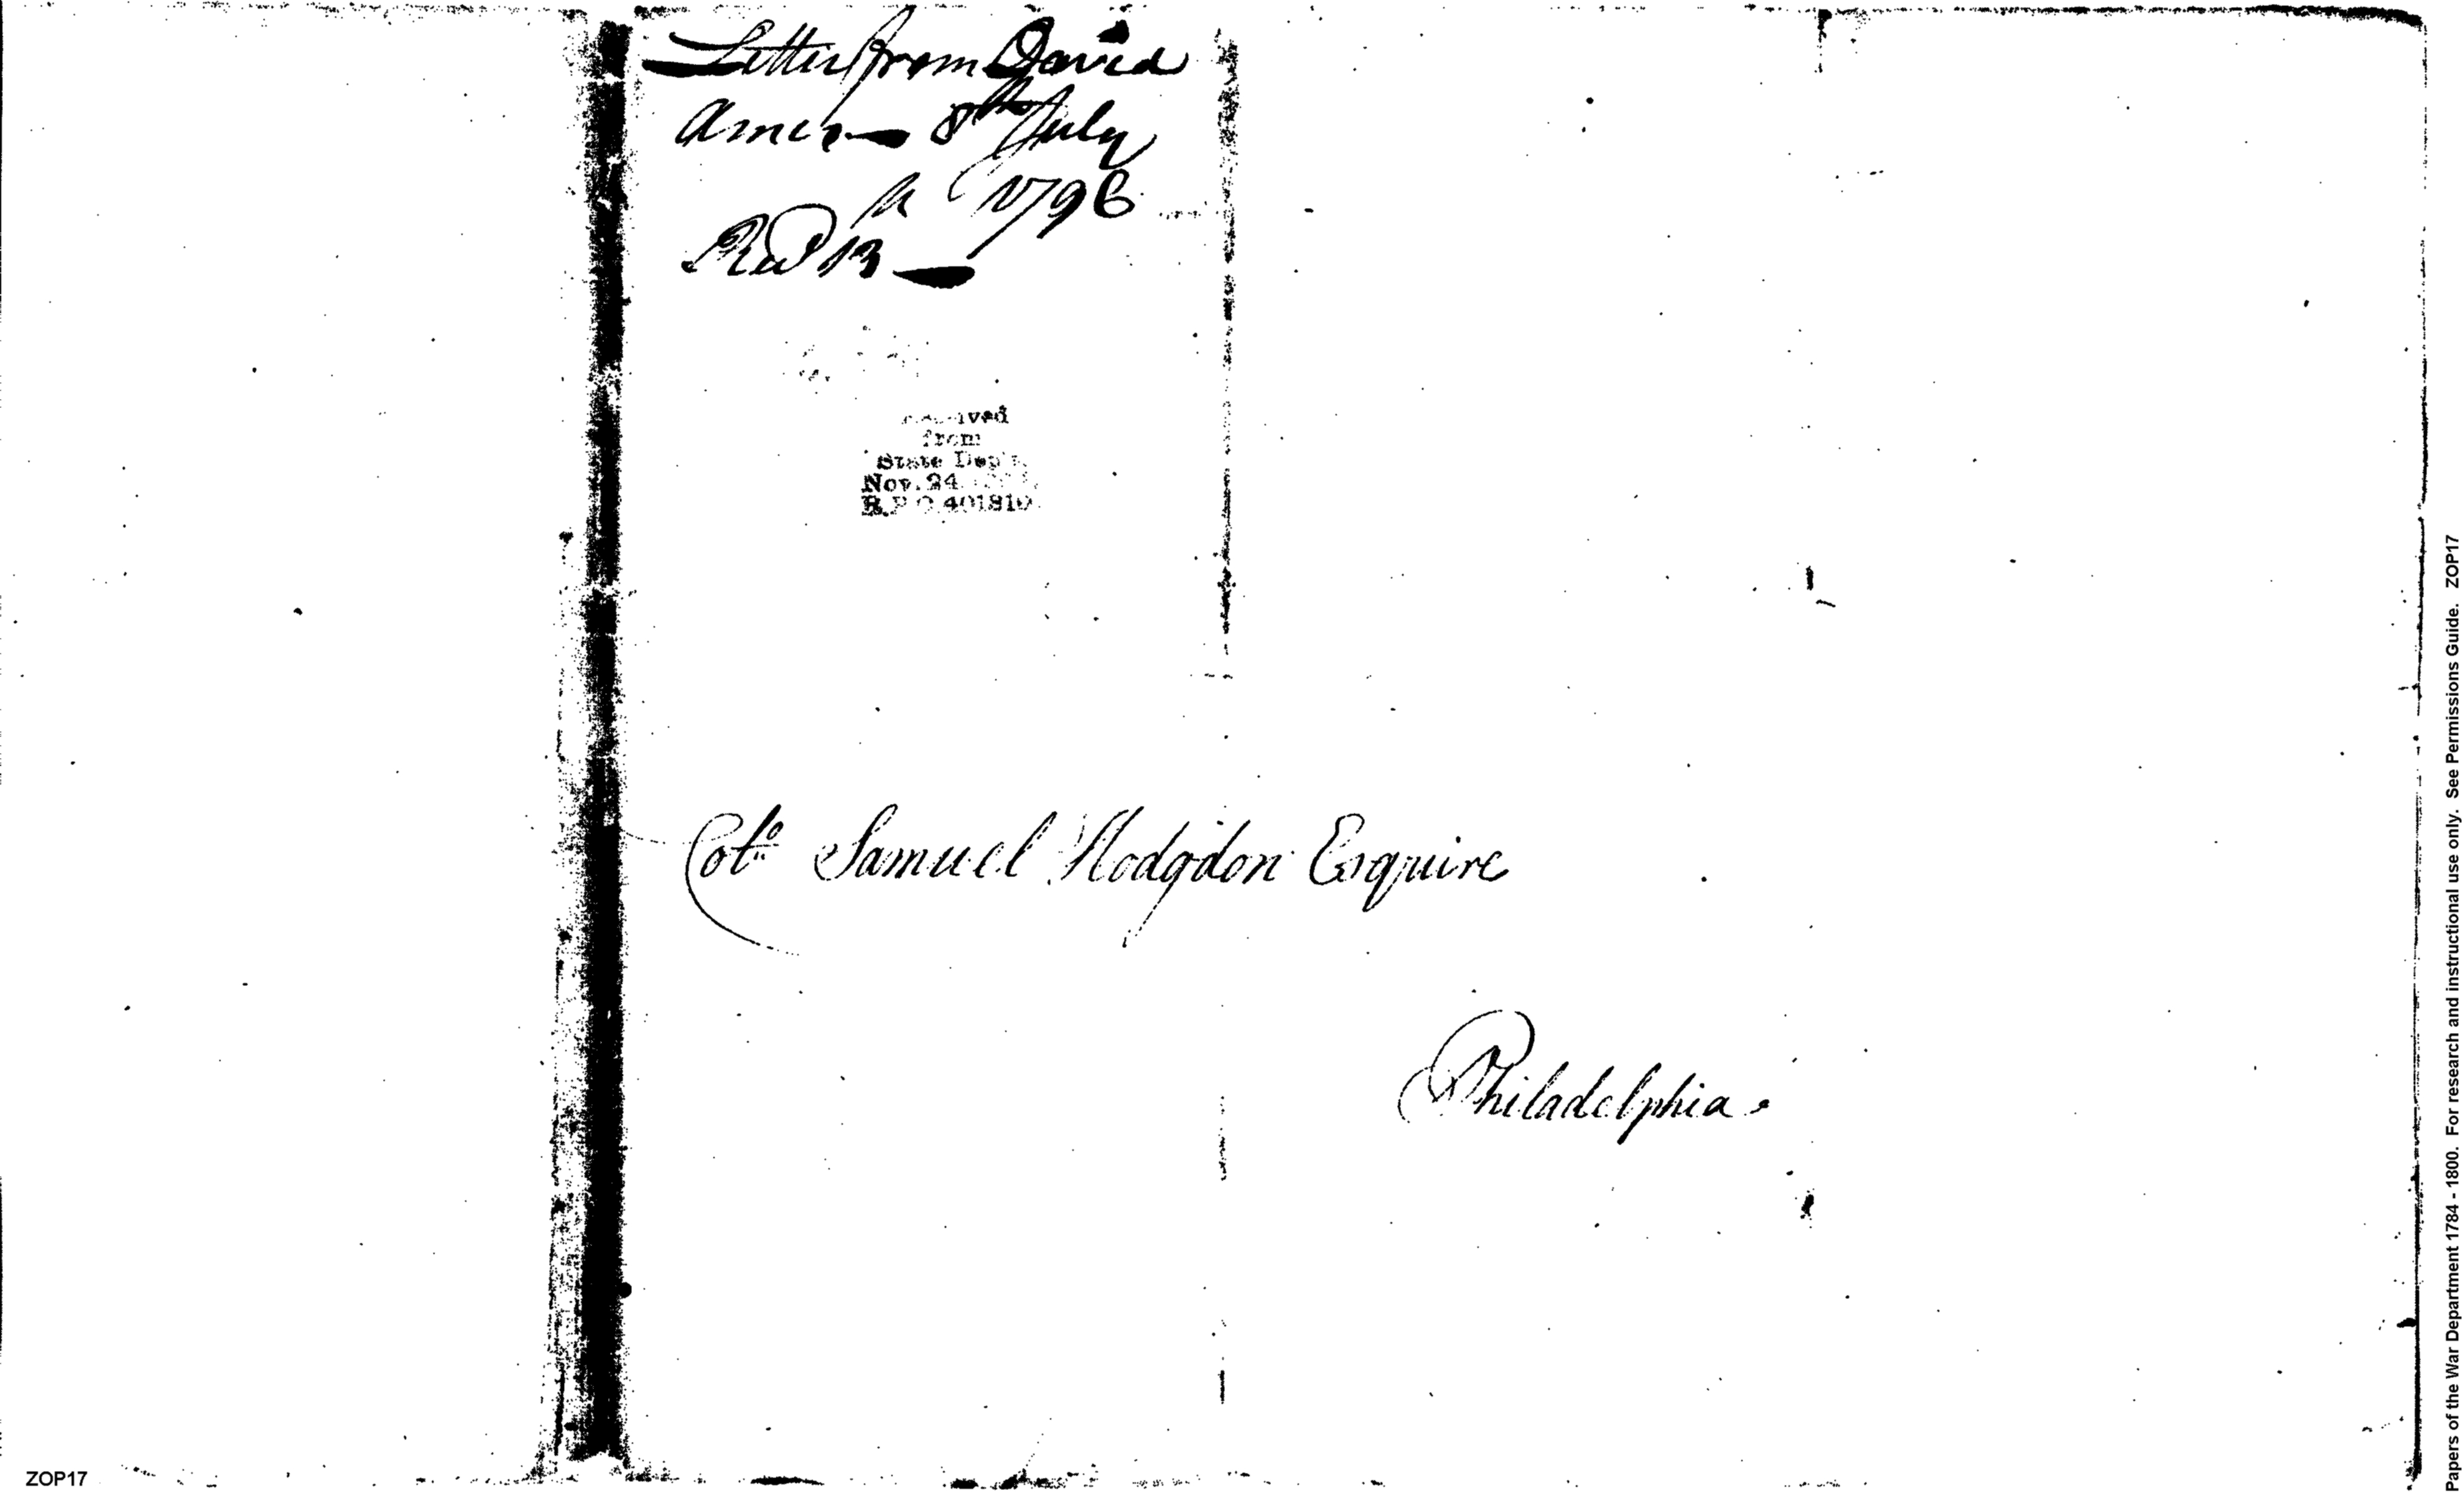 Letter from David
Ames — 8th July
1796
Recd 13th —
from
State Dept.
Nov. 24
R.P.O. 401810
Colo. Samuel Hodgdon Esquire
Philadelphia.
ZOP17
Papers of the War Department 1784 - 1800. For research and instructional use only. See Permissions Guide. ZOP17